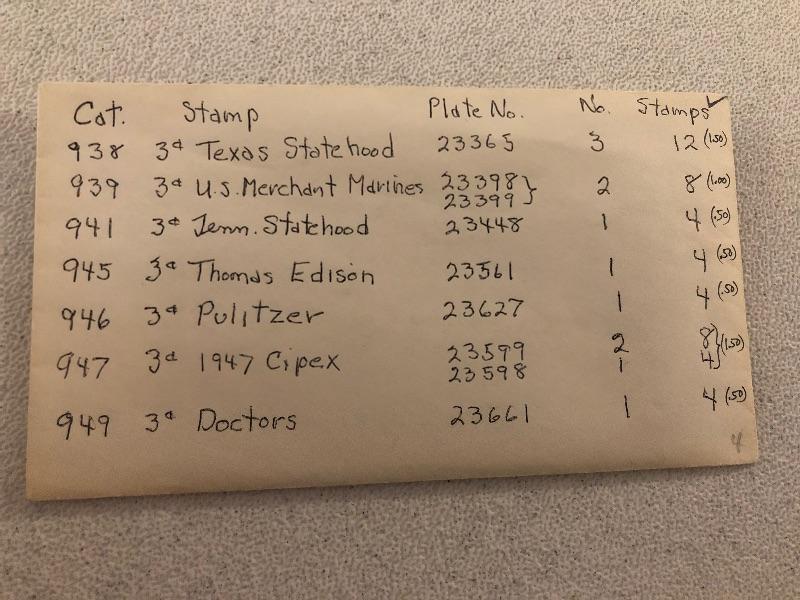 Cat. Stamp Plate No. No. Stamps ✓
938 3¢ Texas Statehood 23365 3 12 (1.50)
939 3¢ U.S. Merchant Marines 23398 } 2 8 (1.00)
23399
941 3¢ Tenn. Statehood 23448 1 4 (.50)
945 3¢ Thomas Edison 23561 1 4 (.50)
946 3¢ Pulitzer 23627 1 4 (.50)
947 3¢ 1947 Cipex 23599 2 8 } (1.50)
23598 1 4
949 3¢ Doctors 23661 1 4 (.50)
4